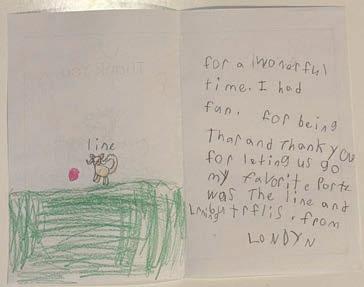 line
for a wonerful
time. I had
fun. for being
Thar and Thank you
for leting us go
my favorite parte
was The line and
butrflis. from
LONDYN